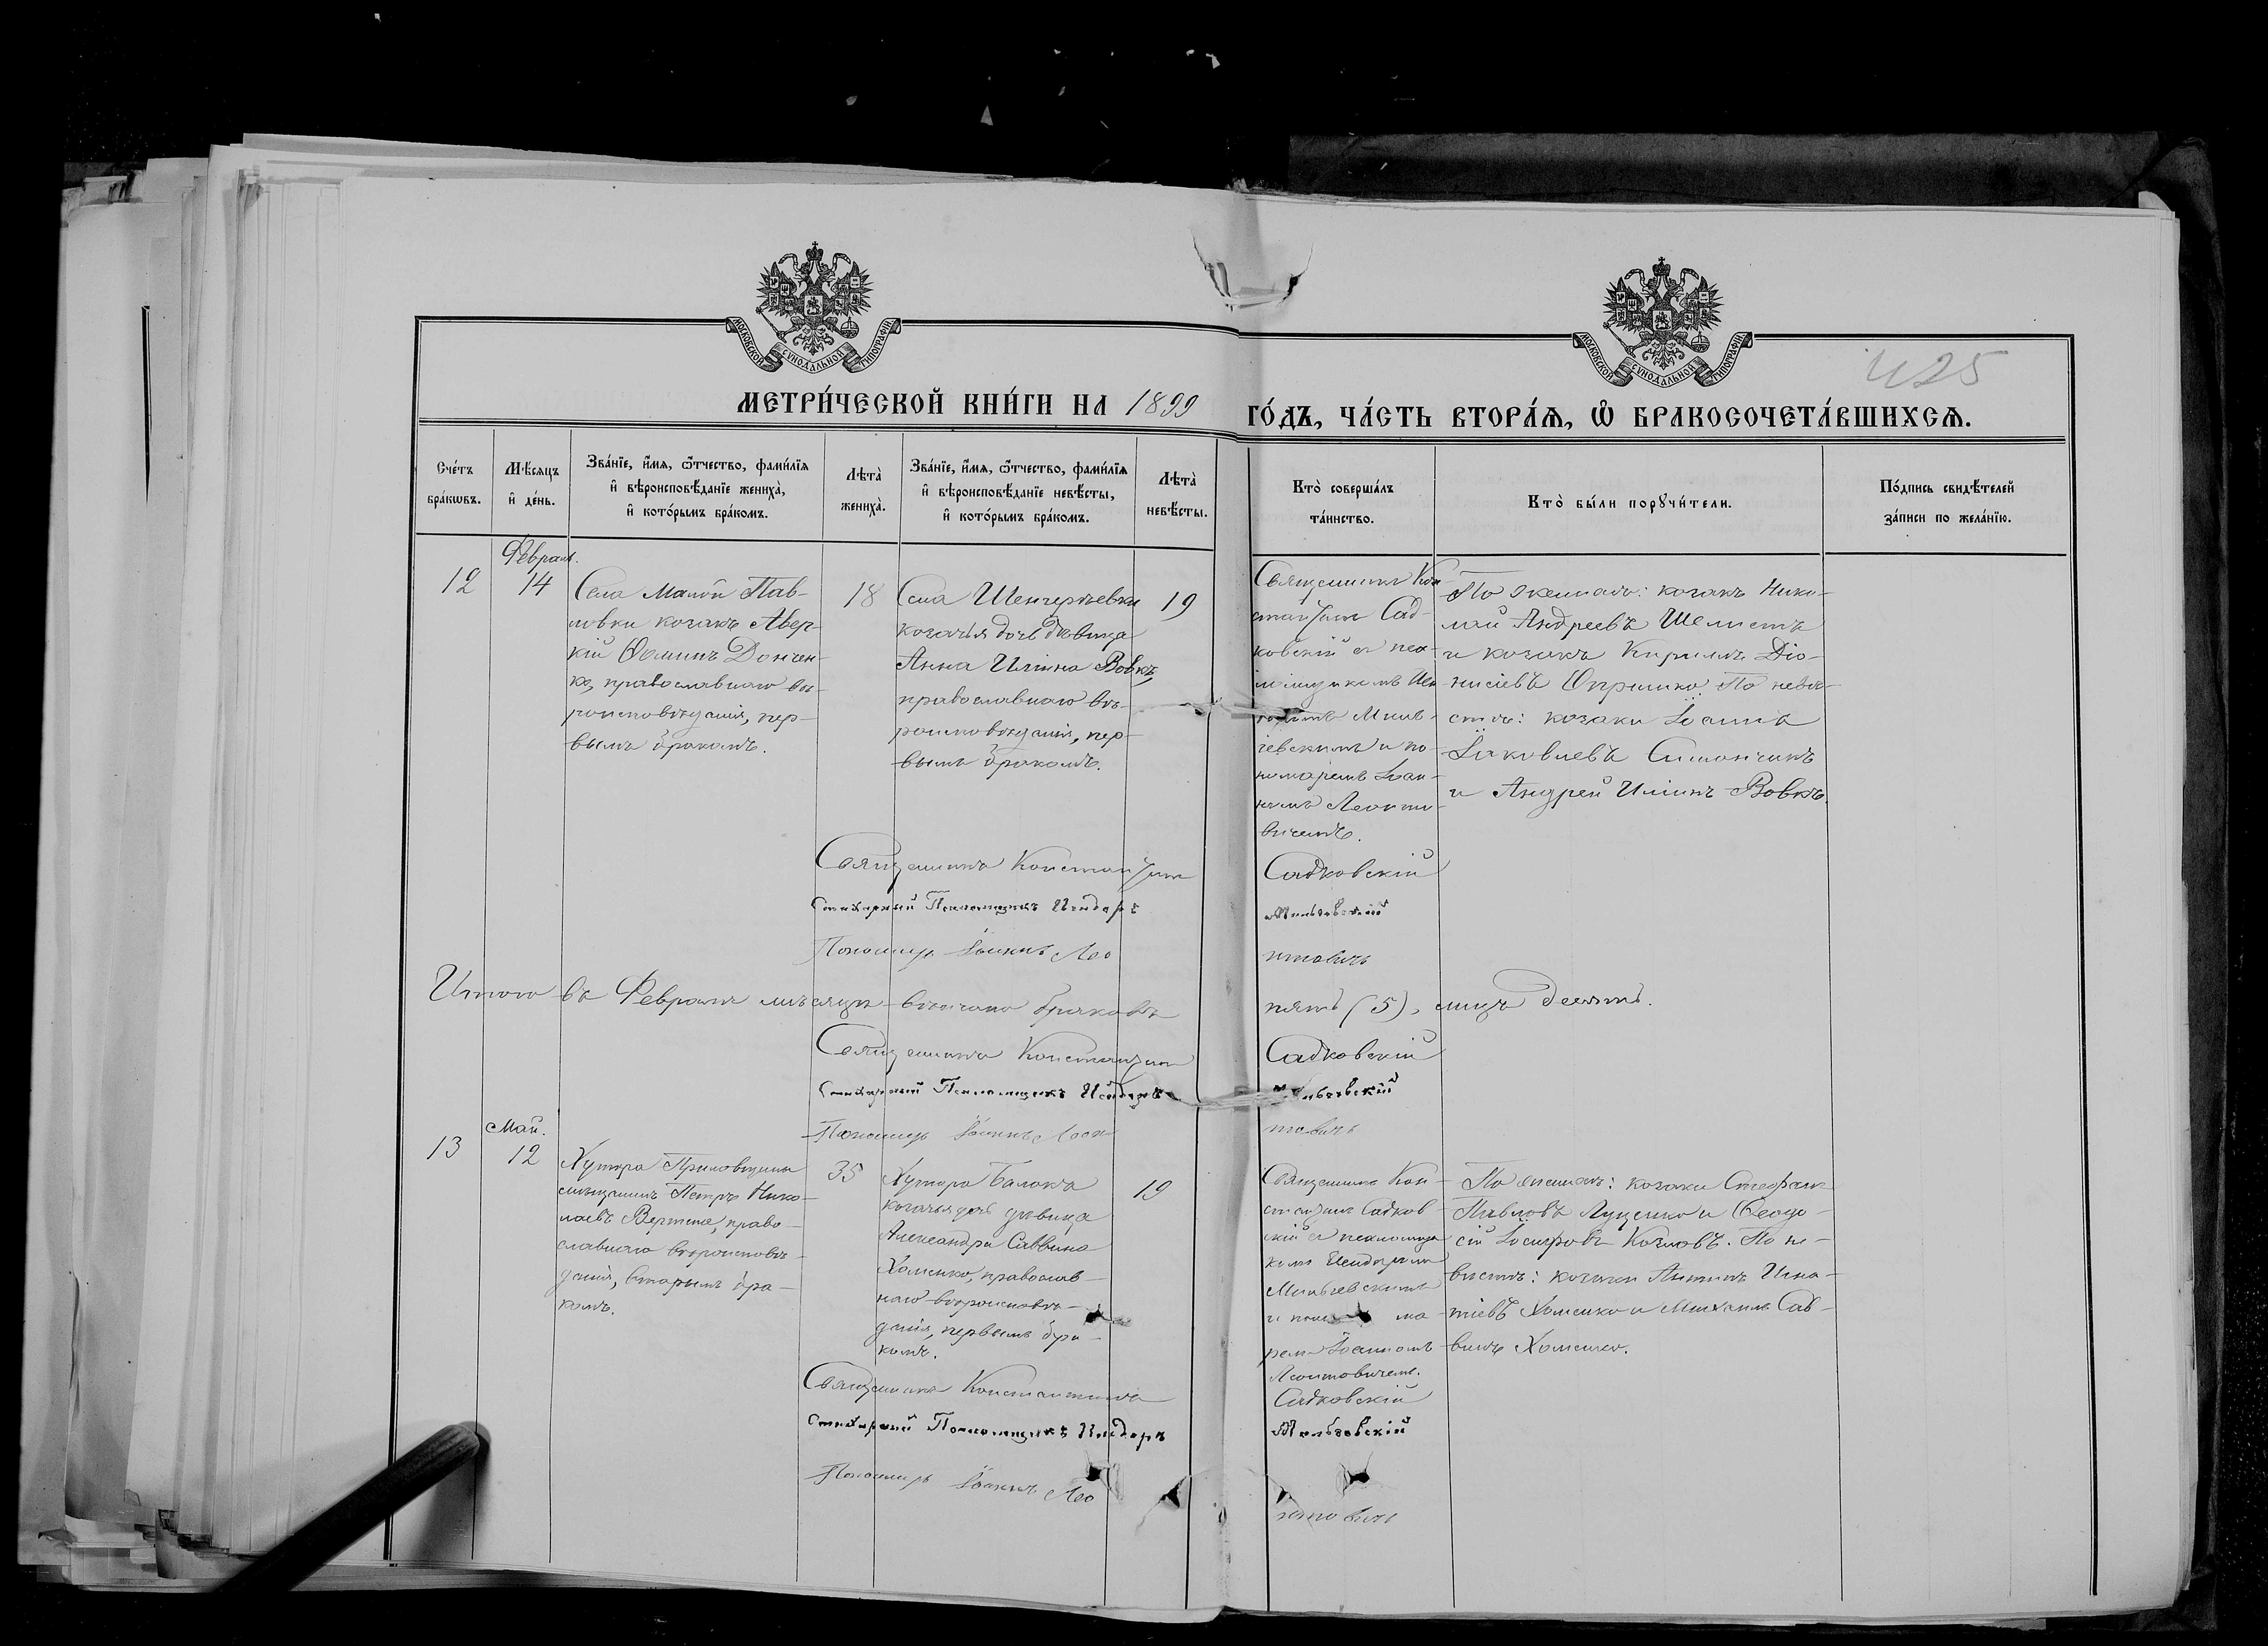 МОСКОВСКОЙ СѴНОДАЛЬНОЙ ТИПОГРАФІИ
МОСКОВСКОЙ СѴНОДАЛЬНОЙ ТИПОГРАФІИ
425
МЕТРИ́ЧЕСКОЙ КНИ́ГИ НА 1899 ГО́ДЪ, ЧА́СТЬ ВТОРА́Я, Ѡ҆ БРАКОСОЧЕТА́ВШИХСЯ.
Сче́тъ
бра́кѡвъ.
Мѣ́сяцъ
и҆ де́нь.
Зва́нїе, и҆́мя, ѻ҆́тчество, фами́лїя
и҆ вѣроисповѣ́данїе жениха̀,
и҆ кото́рымъ бра́комъ.
Лѣта̀
жениха̀.
Зва́нїе, и҆́мя, ѻ҆́тчество, фами́лїя
и҆ вѣроисповѣ́данїе невѣ́сты,
и҆ кото́рымъ бра́комъ.
Лѣта̀
невѣ́сты.
Кто̀ соверша́лъ
та́инство.
Кто̀ бы́ли порꙋчи́тели.
По́дпись свидѣ́телей
за́писи по жела́нїю.
12
Февраль.
14
Села Малой Пав-
ловки козакъ Авер-
кій Ѳоминъ Дончен-
ко, православнаго вѣ-
роисповѣданія, пер-
вымъ бракомъ.
18
Села Шенгерѣевки
козачья дочь дѣвица
Анна Иліина Вовкъ,
православнаго вѣ-
роисповѣданія, пер-
вымъ бракомъ.
19
Священникъ Кон-
стантинъ Сад-
ковскій съ пса-
ломщикомъ Иси-
доромъ Миль-
чевскимъ и по-
номаремъ Іоан-
номъ Леонто-
вичемъ.
По женихѣ: козакъ Нико-
лай Андреевъ Шелестъ
и козакъ Кириллъ Діо-
нисіевъ Опришко. По невѣ-
стѣ: козаки Іоаннъ
Іаковлевъ Симончикъ
и Андрей Иліинъ Вовкъ.
Священникъ Константинъ Садковскій
Стихарный Псаломщикъ Исидоръ Мильчевскій
Пономарь Іоаннъ Лео нтовичъ
Итого въ Февралѣ мѣсяцѣ вѣнчано браковъ пять (5), лицъ десять.
Священникъ Константинъ Садковскій
Стихарный Псаломщикъ Исидоръ Мильчевскій
Пономарь Іоаннъ Леон товичъ
13
Май.
12
Хутора
мѣщанинъ Петръ Нико-
лаевъ право-
славнаго вѣроисповѣ-
данія, вторымъ бра-
комъ.
35
Хутора Балокъ
козачья дочь дѣвица
Александра Саввина
Хоменко, православ-
наго вѣроисповѣ-
данія, первымъ бра-
комъ.
19
Священникъ Кон-
стантинъ Садков-
скій съ псаломщи-
комъ Исидоромъ
Мильчевскимъ
и поно ма-
ремъ Іоанномъ
Леонтовичемъ.
По женихѣ: козаки Стефанъ
Павловъ Луценко и Ѳеодо-
сій Іосифовъ Козловъ. По не-
вѣстѣ: козаки Антонъ Игна-
тіевъ Хоменко и Михаилъ Сав-
винъ Хоменко.
Священникъ Константинъ Садковскій
Стихарный Псаломщикъ Исидоръ Мильчевскій
Пономарь Іоаннъ Лео нтовичъ